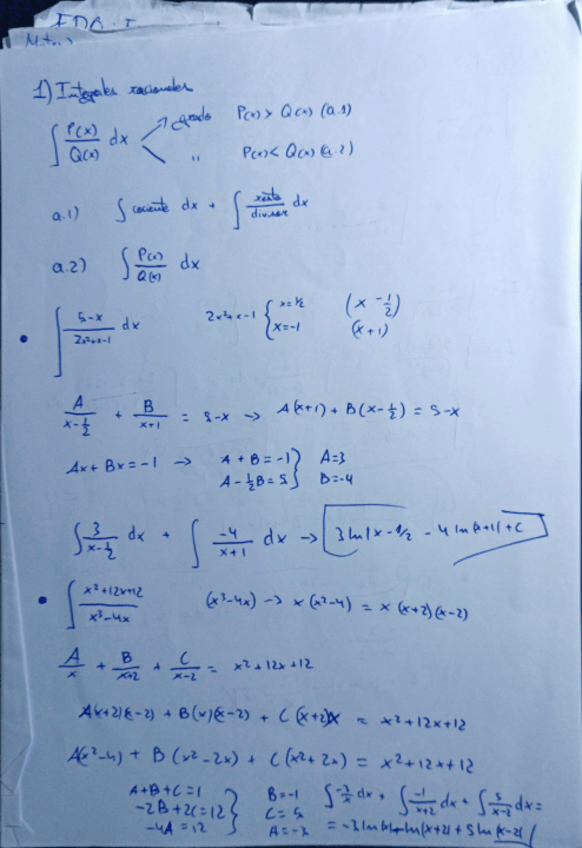 EDO-I
1) Integrales racionales
∫ P(x)/Q(x) dx grado P(x) > Q(x) (a.1)
" P(x) < Q(x) (a.2)
a.1) ∫ cociente dx + ∫ resto/divisor dx
a.2) ∫ P(x)/Q(x) dx
• ∫ 5-x/2x²+x-1 dx 2x²+x-1 { x=1/2 (x - 1/2)
x=-1 (x+1)
A/x-1/2 + B/x+1 = 5-x -> A(x+1) + B(x-1/2) = 5-x
Ax + Bx = -1 -> A + B = -1 } A=3
A - 1/2B = 5 } B=-4
∫ 3/x-1/2 dx + ∫ -4/x+1 dx -> 3 ln|x-1/2 - 4 ln|x+1| + C
• ∫ x²+12x+12/x³-4x (x³-4x) -> x(x²-4) = x(x+2)(x-2)
A/x + B/x+2 + C/x-2 = x²+12x+12
A(x+2)(x-2) + B(x)(x-2) + C(x+2)x = x²+12x+12
A(x²-4) + B(x²-2x) + C(x²+2x) = x²+12x+12
A+B+C=1 } B=-1 ∫ -3/x dx + ∫ -1/x+2 dx + ∫ 5/x-2 dx =
-2B+2C=12 } C=5
-4A=12 } A=-3 = -3 ln|x|-ln|x+2| + 5 ln|x-2|